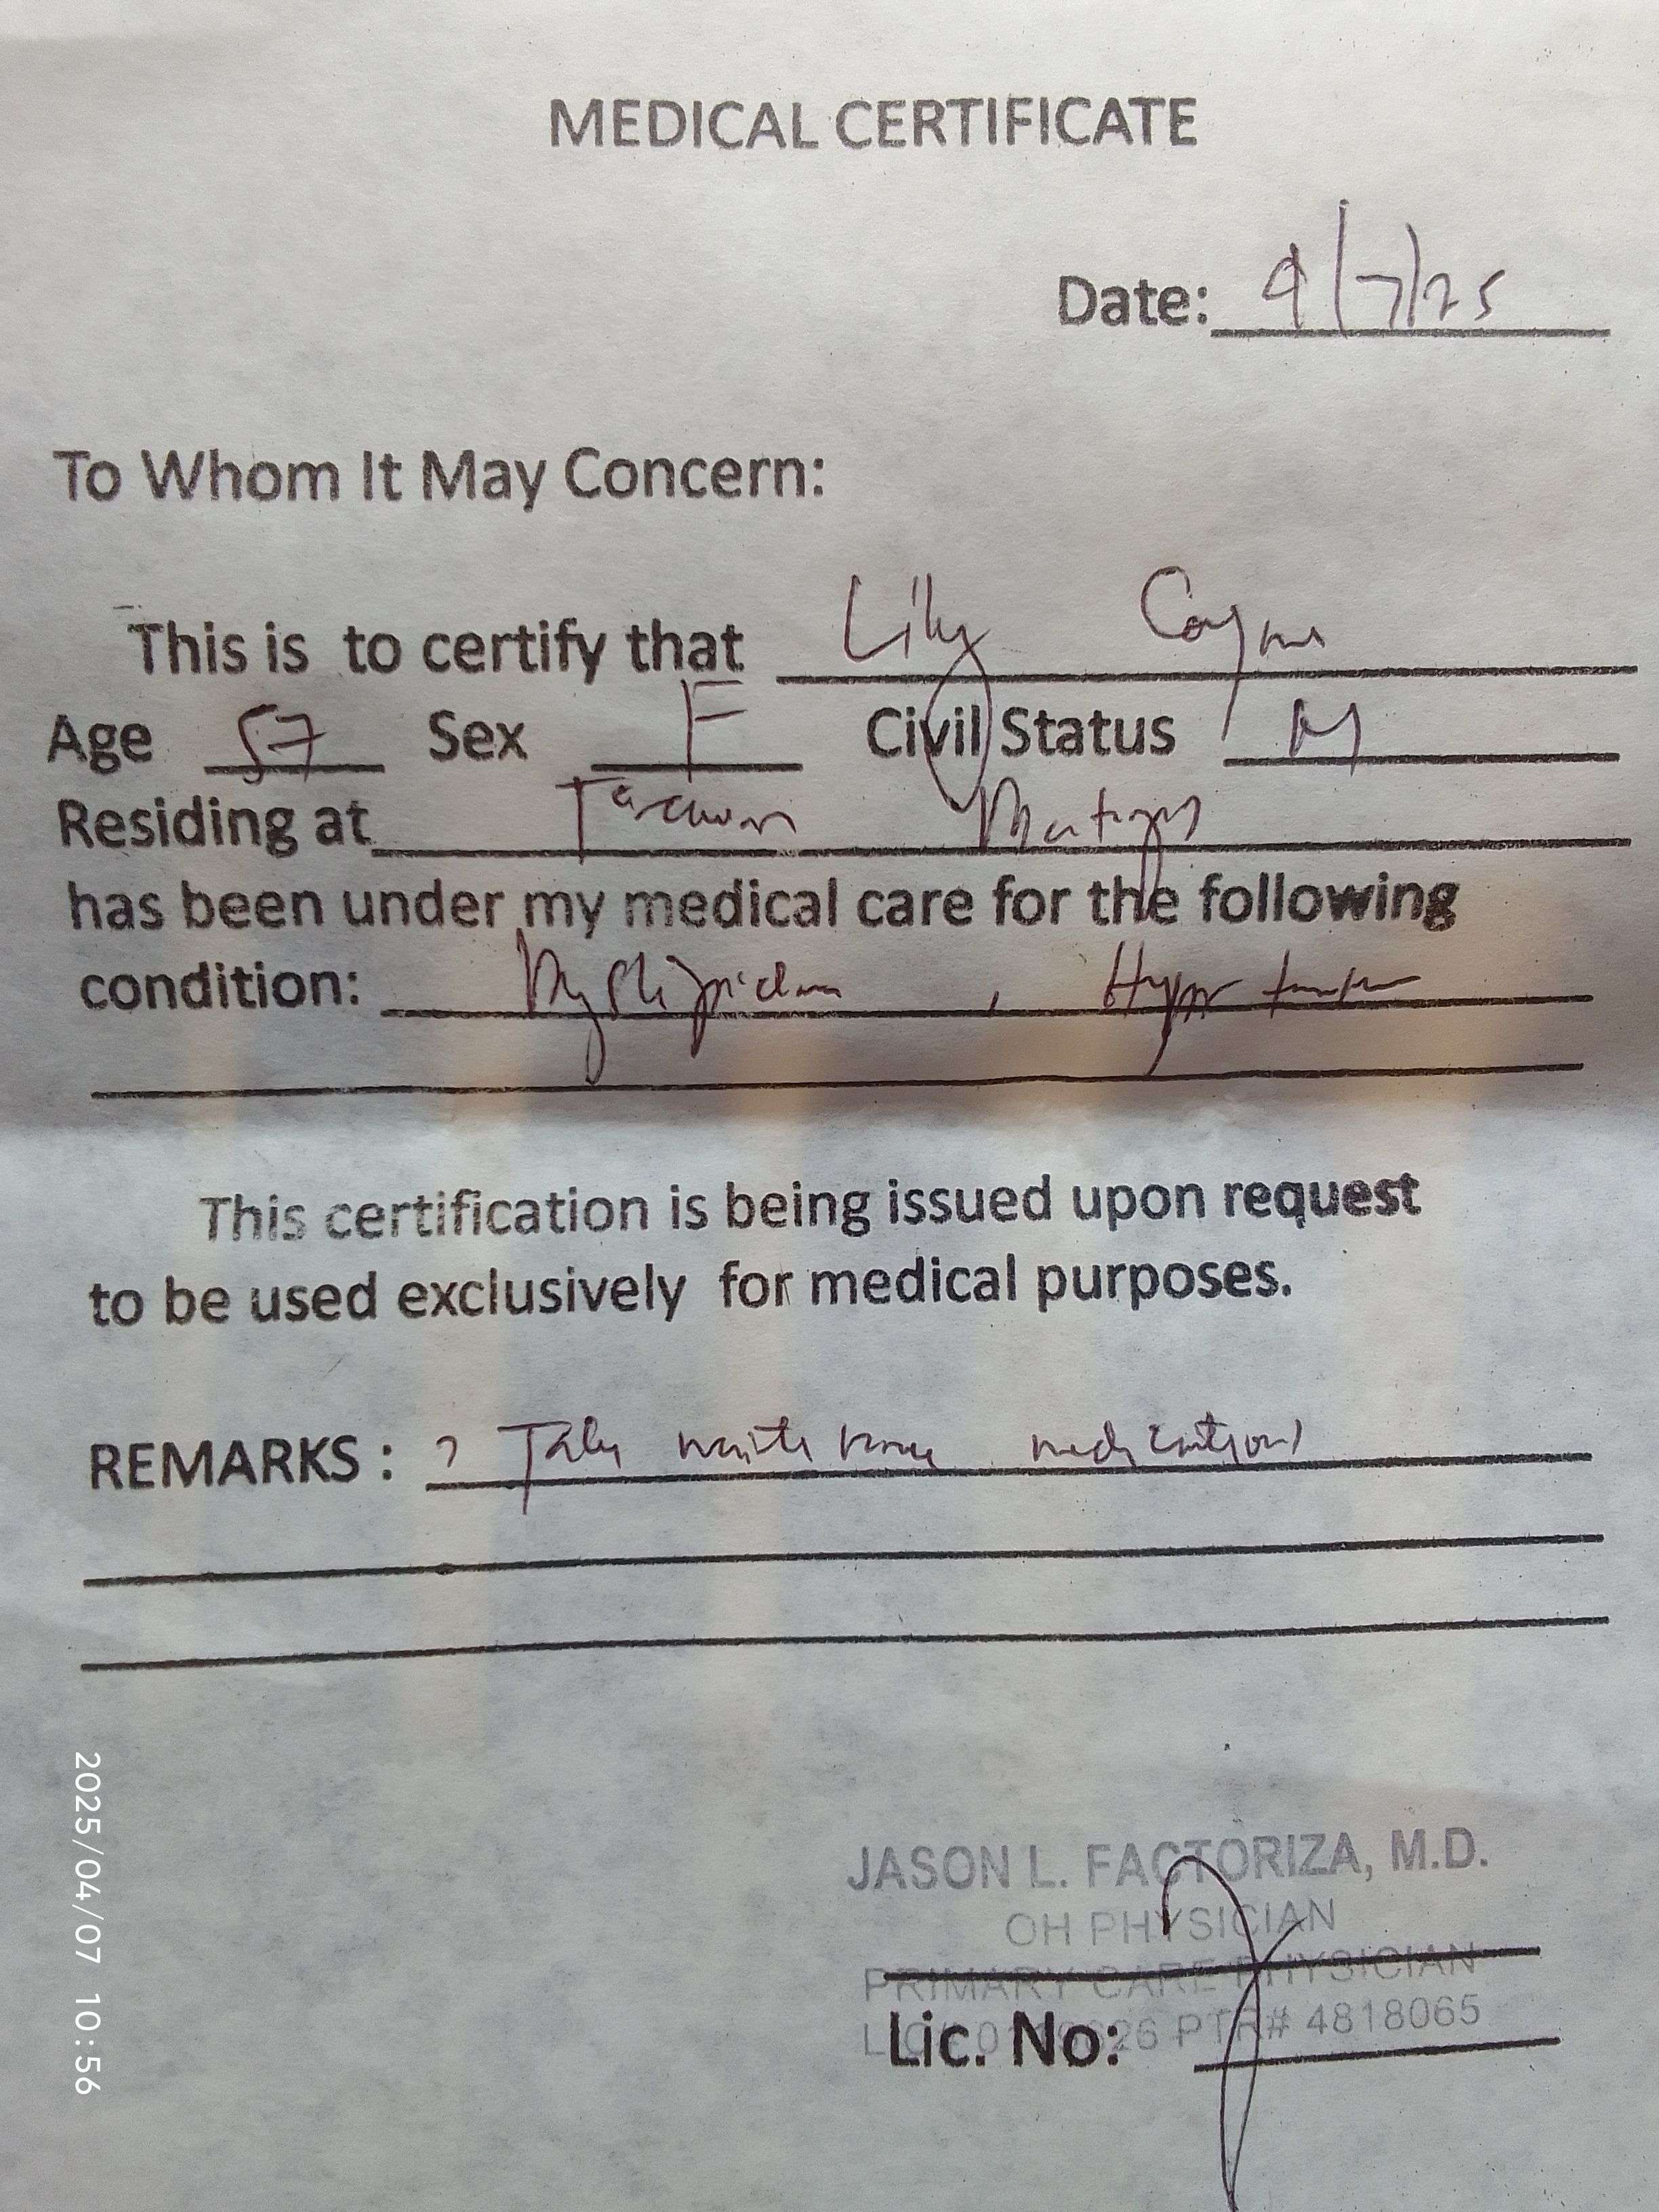 MEDICAL CERTIFICATE
Date: 4/7/25
To Whom It May Concern:
This is to certify that Lily
Age 57 Sex F Civil Status M
Residing at
has been under my medical care for the following
condition: Dyslipidemia, Hypertension
This certification is being issued upon request
to be used exclusively for medical purposes.
REMARKS : Take maintenance medications
JASON L. FACTORIZA, M.D.
OH PHYSICIAN
PRIMARY CARE PHYSICIAN
PTR# 4818065
Lic. No:
2025/04/07 10:56